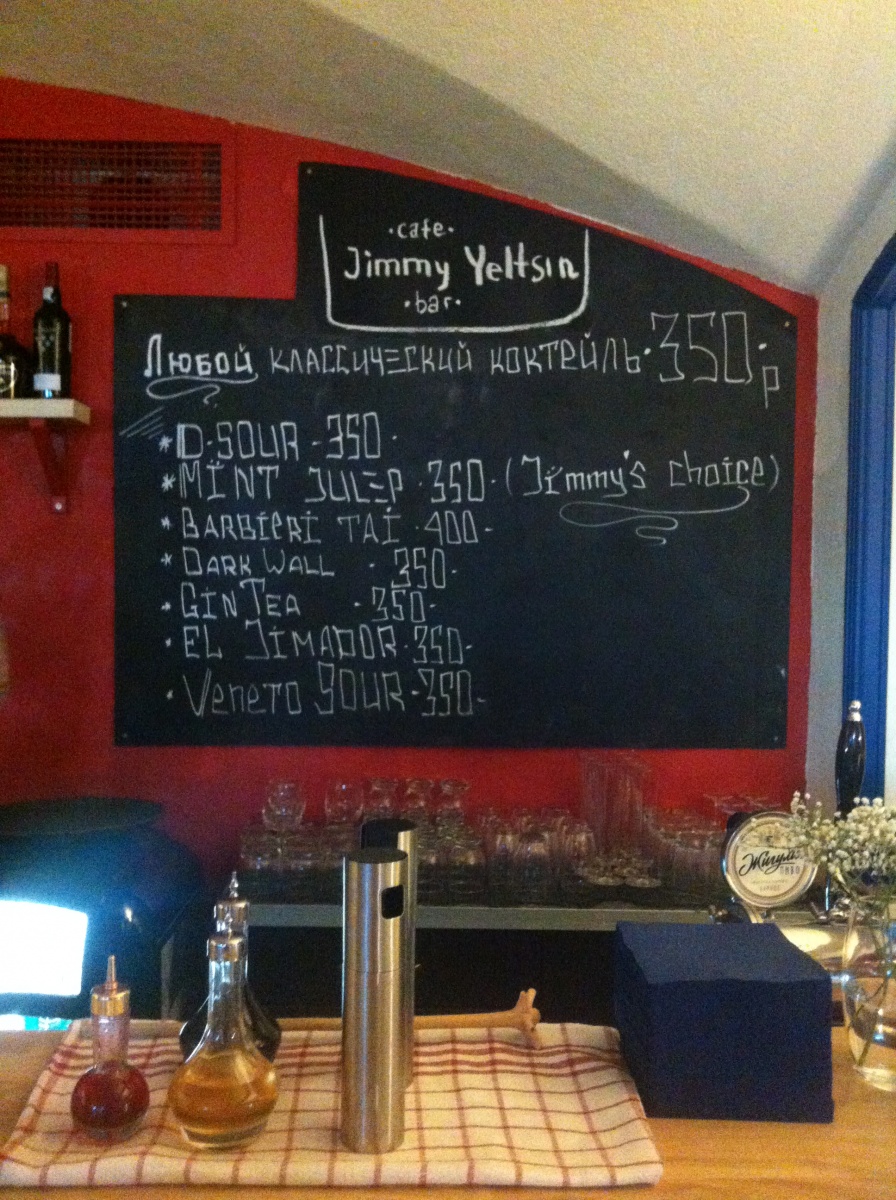 ·cafe·
Jimmy Yeltsin
·bar·
Любой классический коктейль·350·р
*D·SOUR-350·
*MINT JULEP·350·(Jimmy's choice)
*BARBIERI TAI·400-
*DARK WALL ·350·
*GIN TEA ·350·
·EL JIMADOR·350-
·Veneto SOUR-350-
Жигули
ПИВО